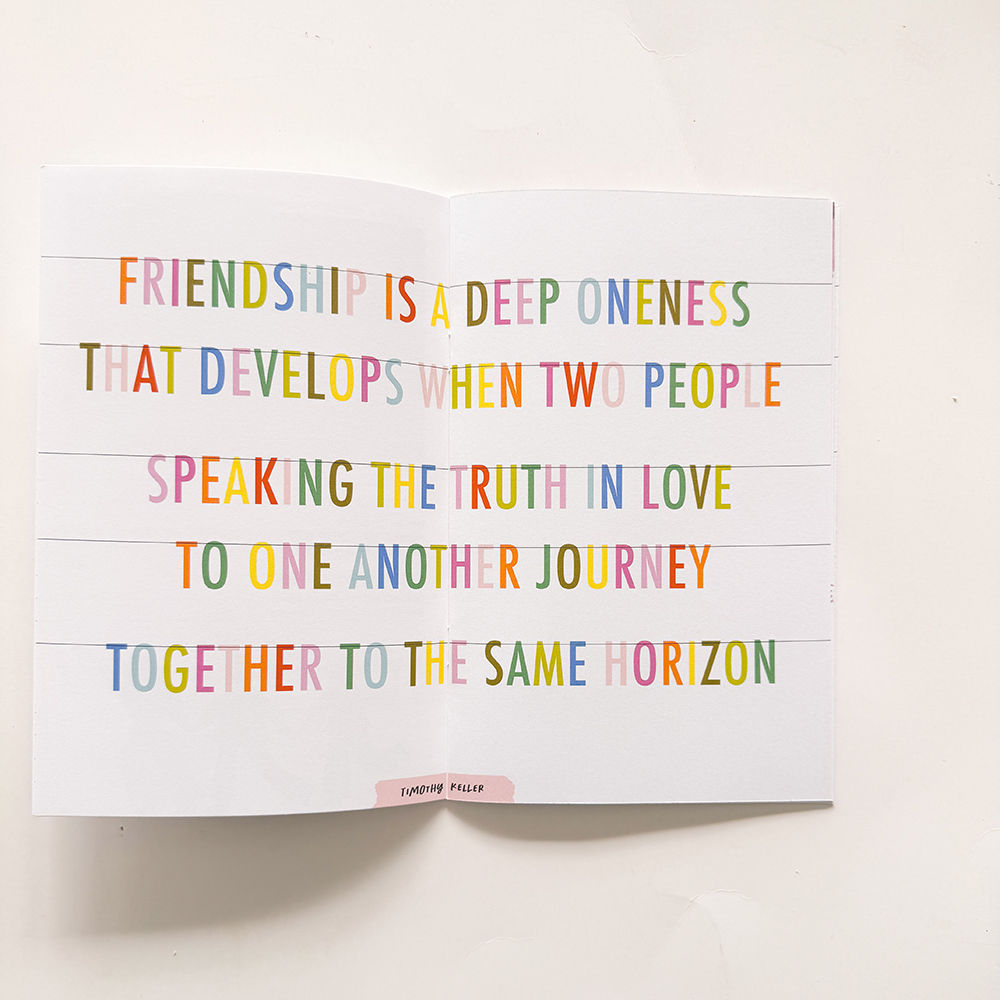 FRIENDSHIP IS A DEEP ONENESS
THAT DEVELOPS WHEN TWO PEOPLE
SPEAKING THE TRUTH IN LOVE
TO ONE ANOTHER JOURNEY
TOGETHER TO THE SAME HORIZON
TIMOTHY KELLER